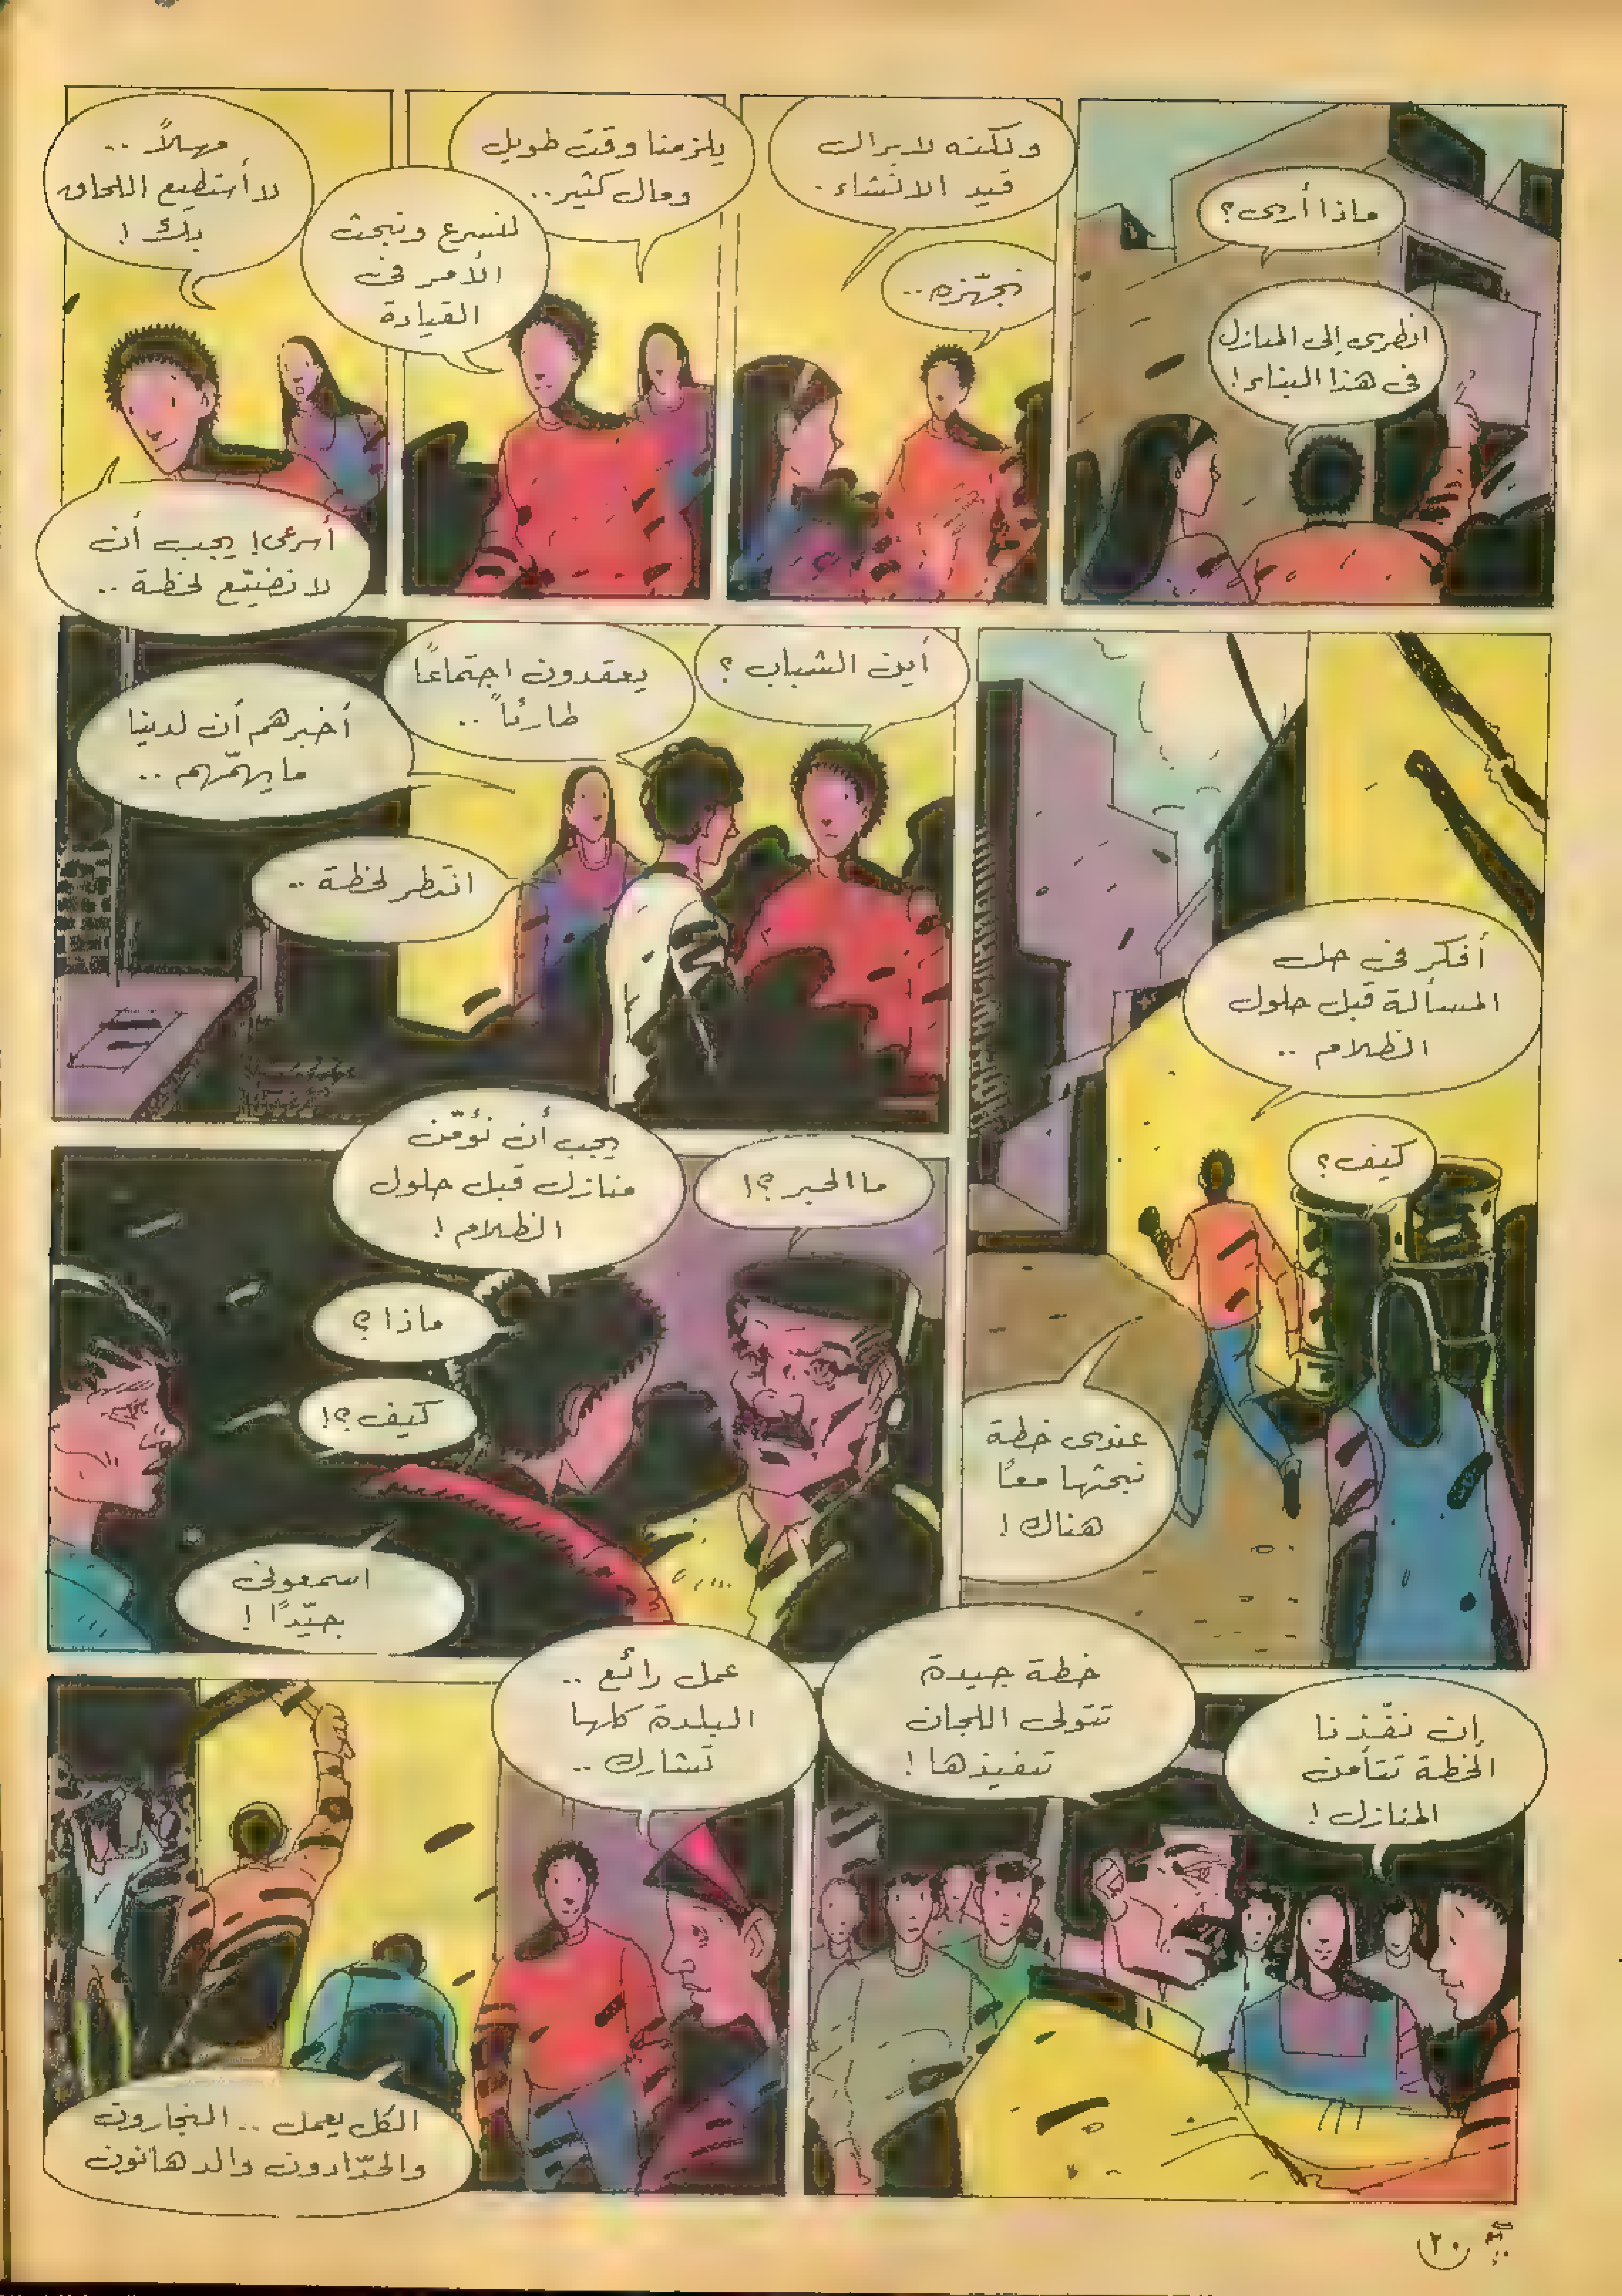 ماذا أرى؟
انظرى إلى المنازل
فى هذا البناء!
ولكنه لا يزال
قيد الانشاء.
نجهّزه..
يلزمنا وقت طويل
ومال كثير..
لنسرع ونبحث
الأمر فى
القيادة
مهلاً..
لا أستطيع اللحاق
بك!
أسرعى! يجب أن
لا نضيّع لحظة..
أفكر فى حل
المسألة قبل حلول
الظلام..
كيف؟
عندى خطة
نبحثها معًا
هناك!
أين الشباب؟
يعقدون اجتماعًا
طارئاً..
أخبرهم أن لدينا
ما يهمّهم..
انتظر لحظة..
ما الخبر؟!
يجب أن نؤمّن
منازل قبل حلول
الظلام!
ماذا؟
كيف؟!
اسمعونى
جيّدًا!
إن نفّذنا
الخطة تتأمن
المنازل!
خطة جيدة
تتولى اللجان
تنفيذها!
عمل رائع..
البلدة كلها
تشارك..
الكل يعمل.. النجارون
والحدّادون والدهانون
٢٠